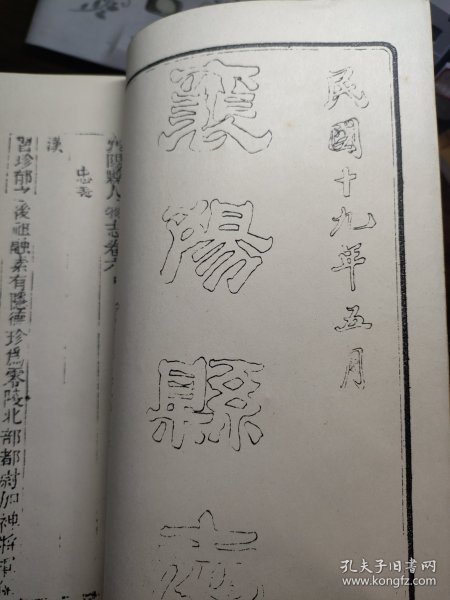 民國十九年五月
襄陽縣志
襄陽縣人物志卷六
忠義
漢
習珍郁之後祖融素有隱德珍為零陵北部都尉加神將軍
孔夫子旧书网
www.kongfz.com